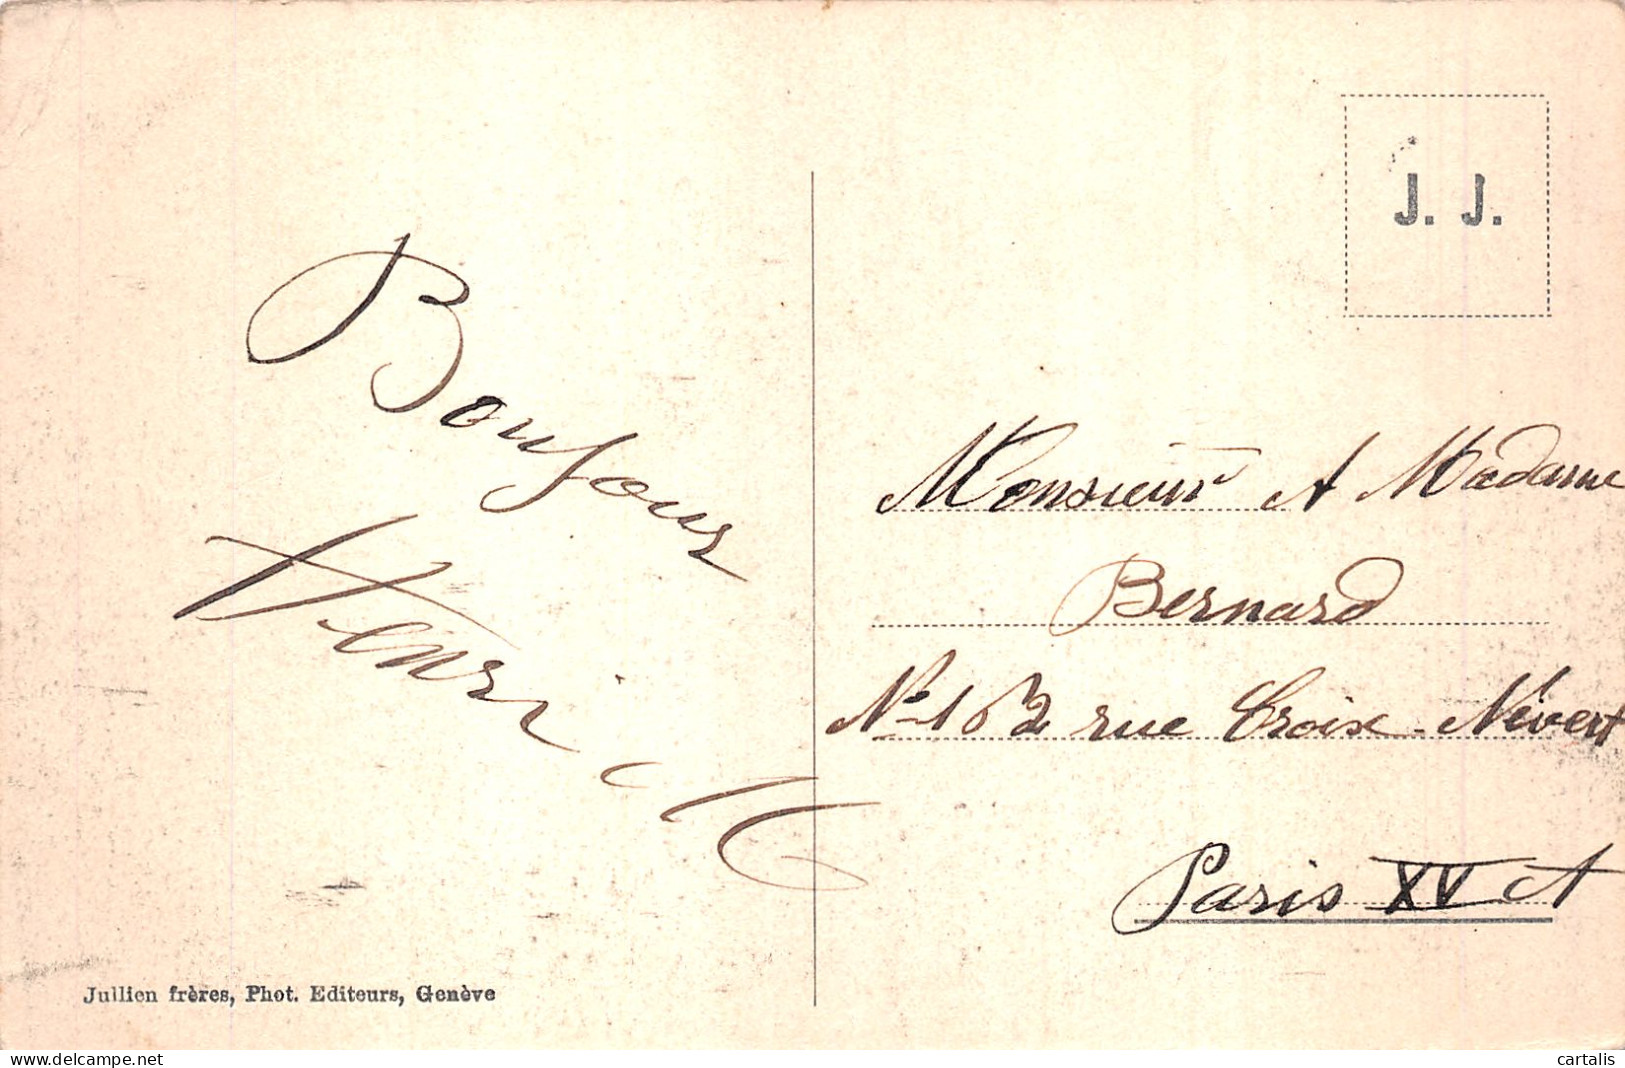 J. J.
Bonjour
Henri
Monsieur et Madame
Bernard
N° 162 rue Croix-Nivert
Paris XV
Jullien frères, Phot. Editeurs, Genève
delcampe.net
cartalis